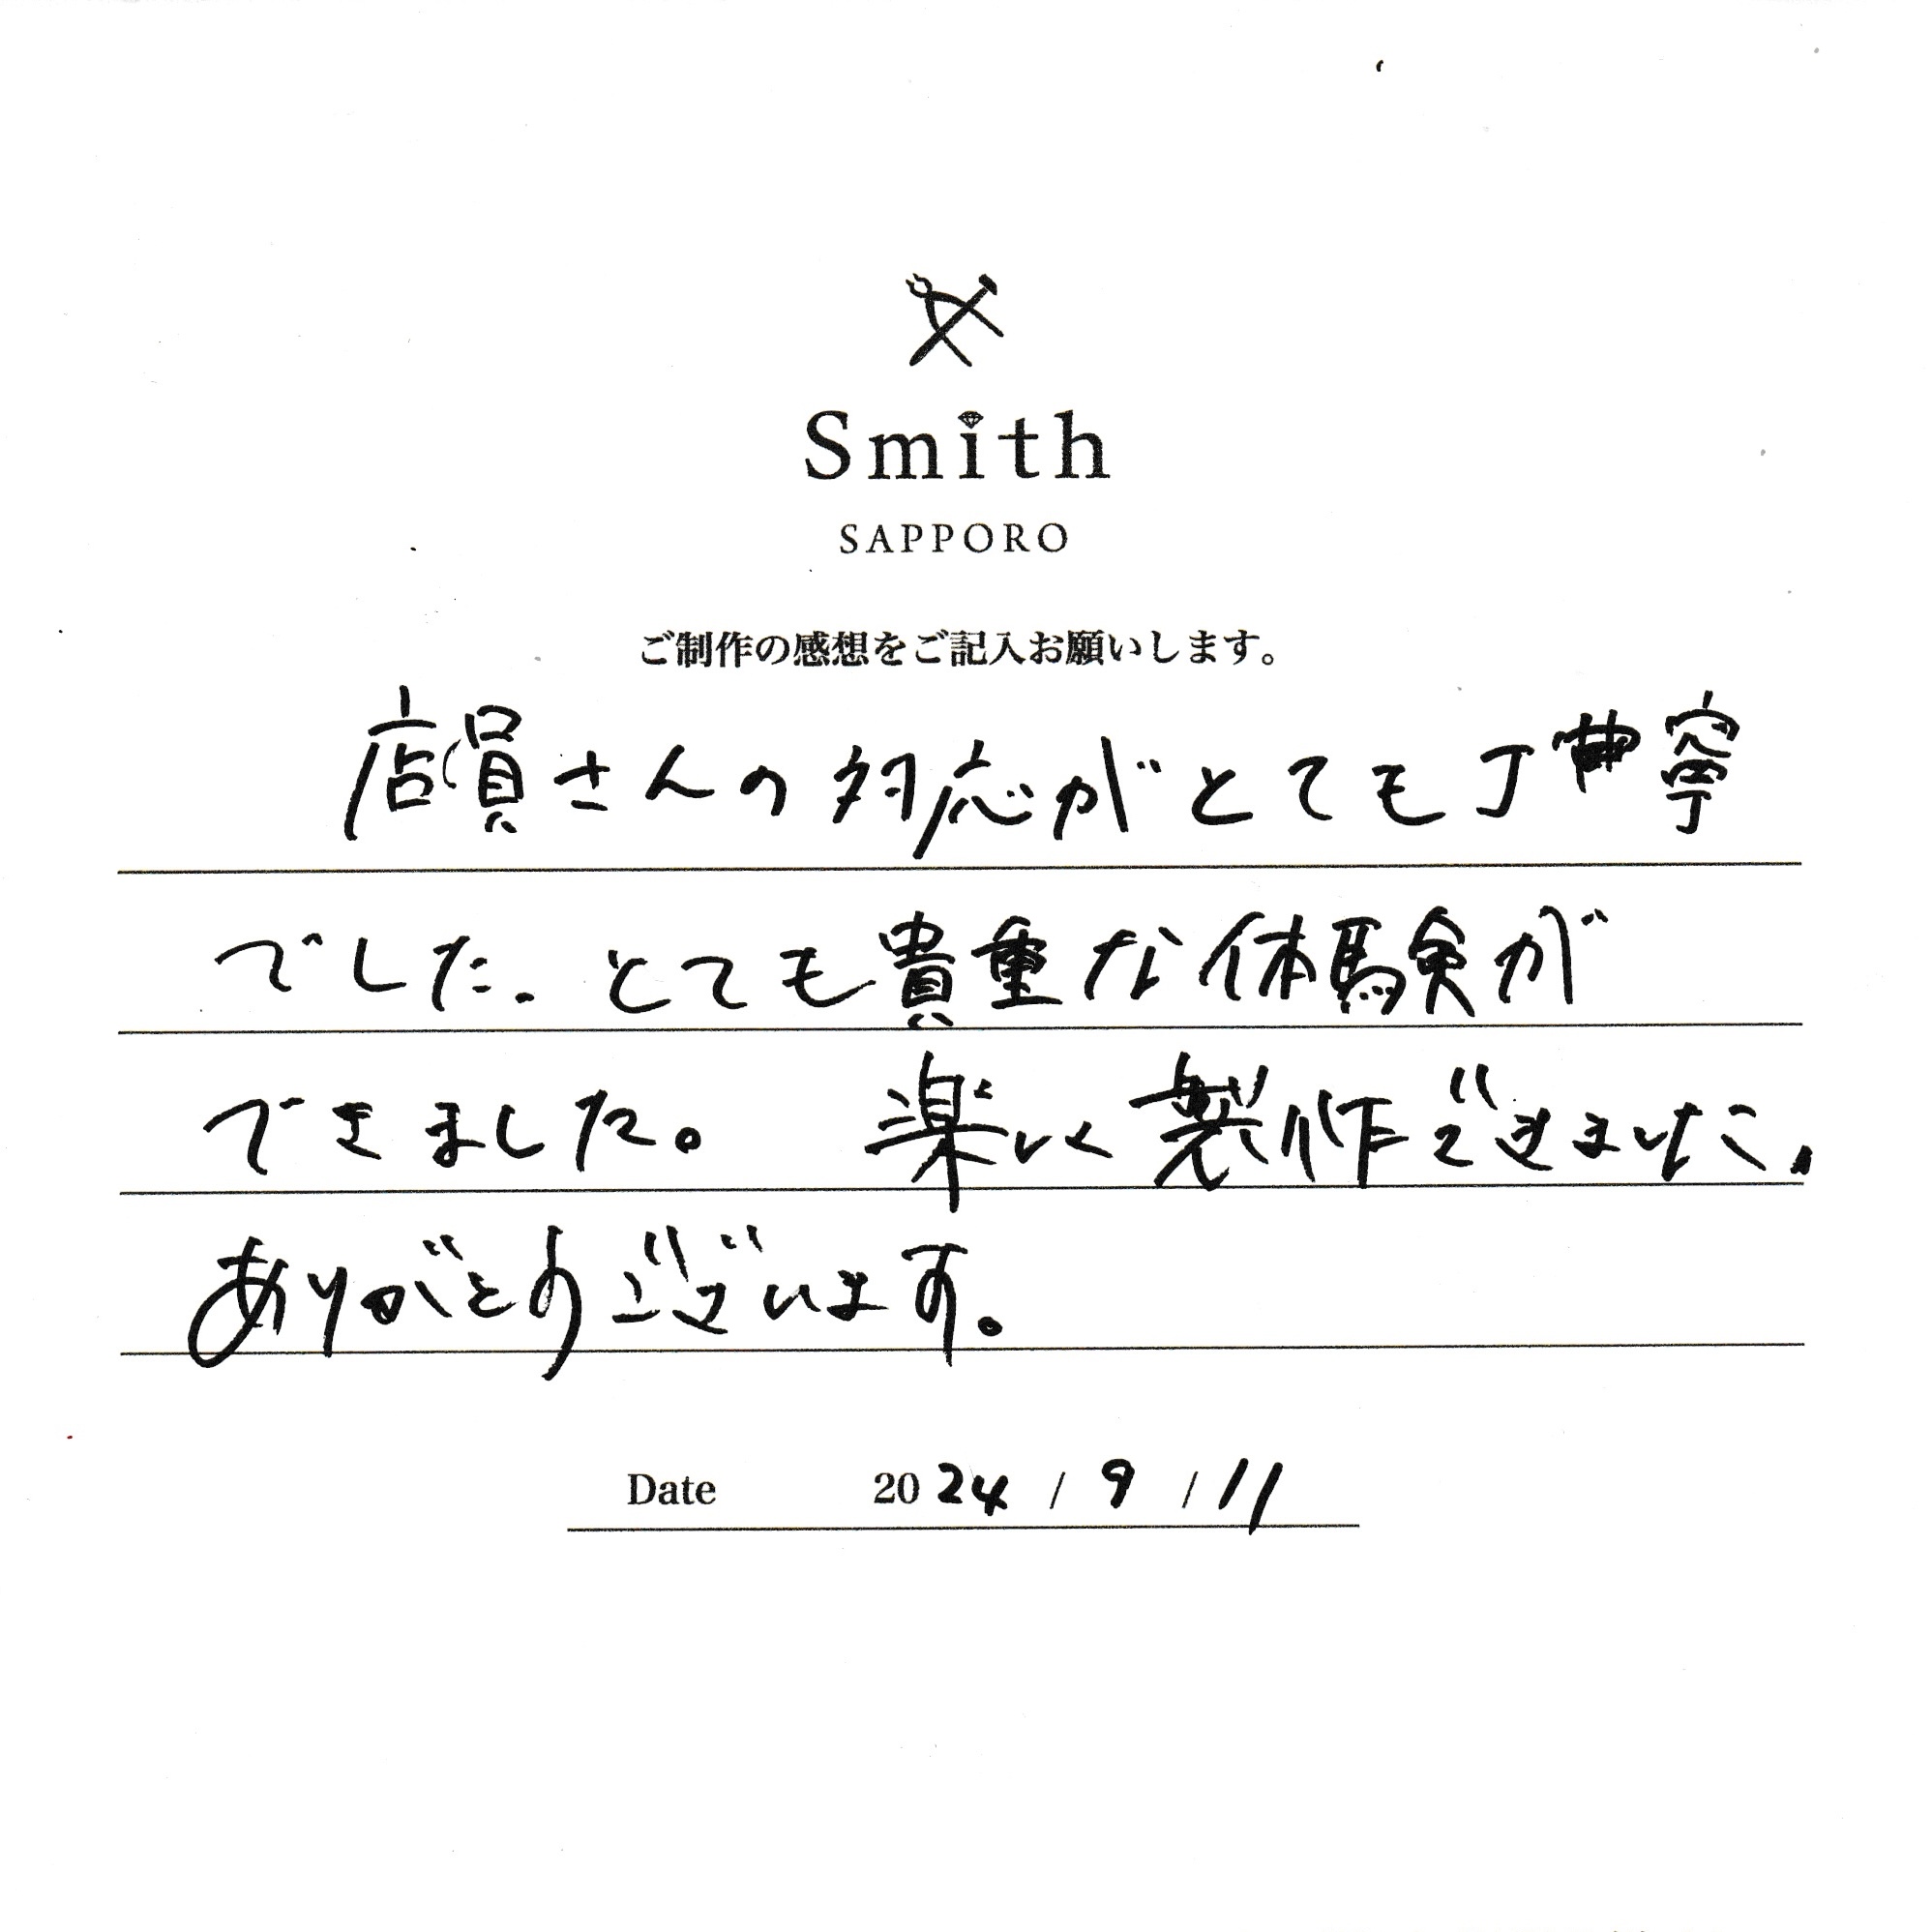 Smith
SAPPORO
ご制作の感想をご記入お願いします。
店員さんの対応がとても丁寧
でした。とても貴重な体験が
できました。 楽しく製作できました。
ありがとうございます。
Date 2024 / 9 / 11